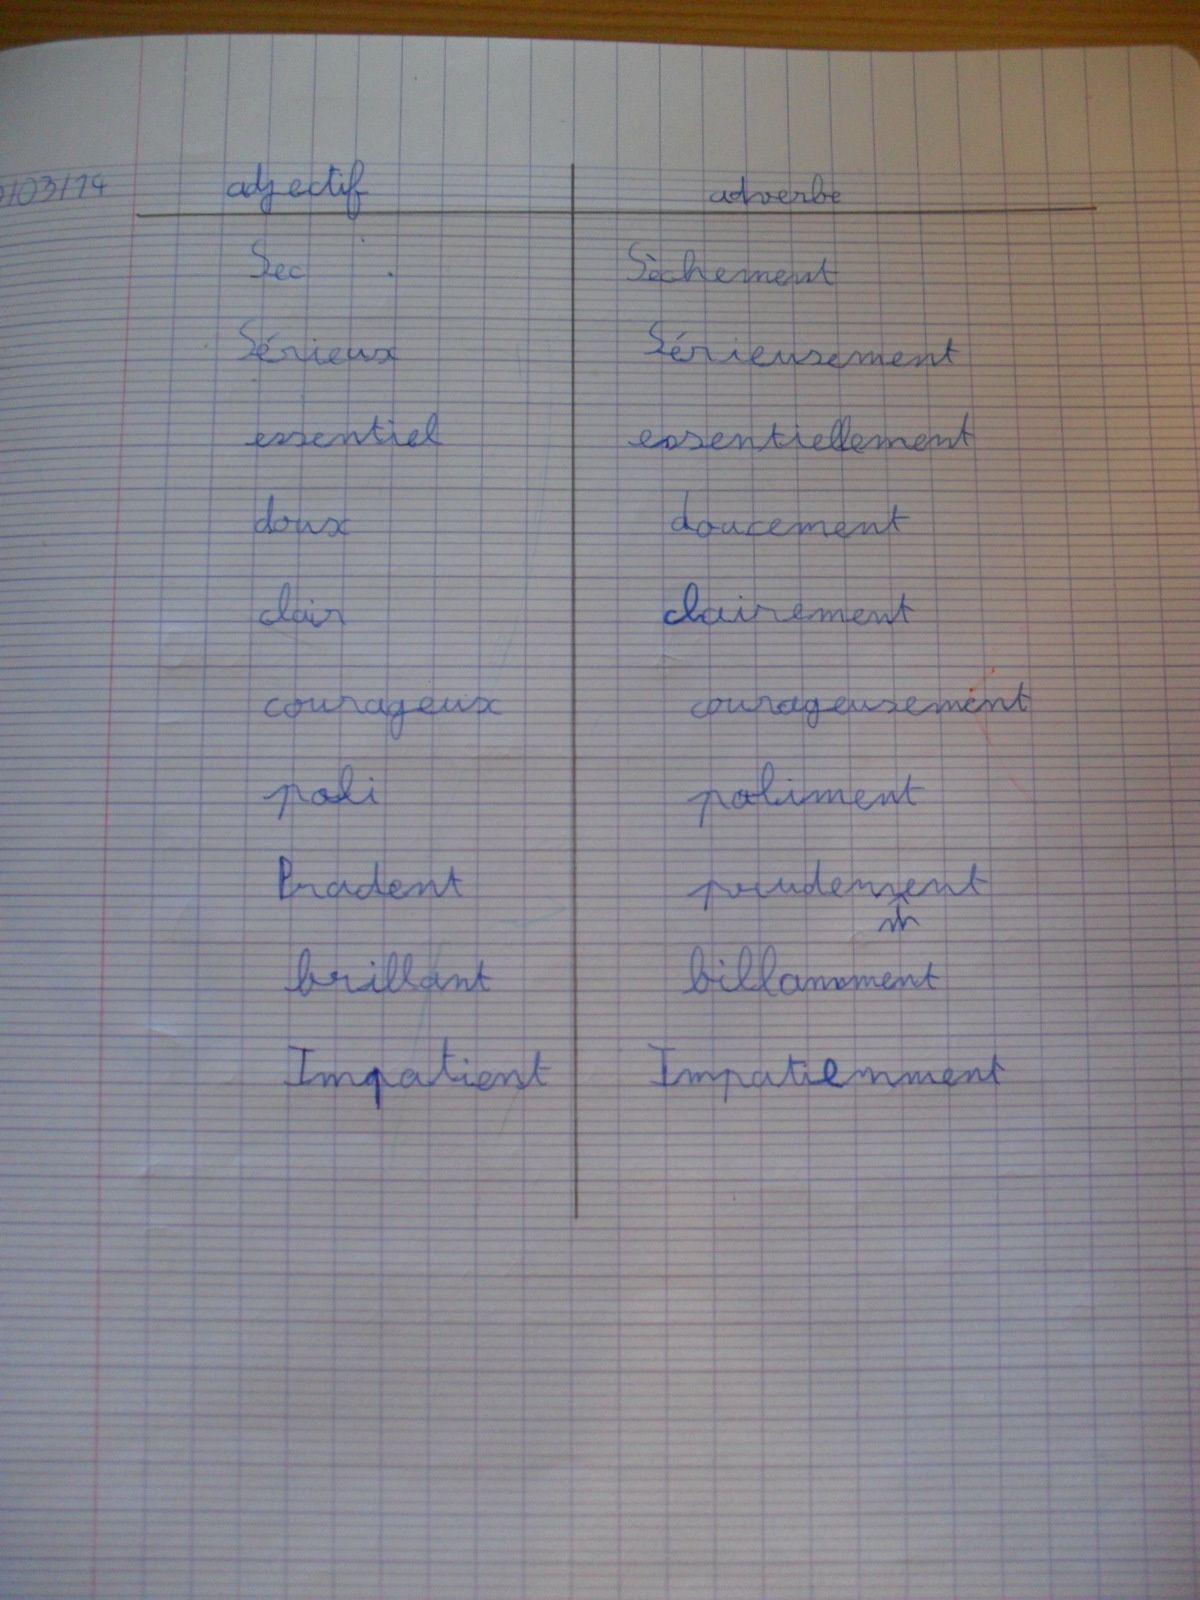 /03/14 adjectif adverbe
Sec Sèchement
Sérieux Sérieusement
essentiel essentiellement
doux doucement
clair clairement
courageux courageusement
poli poliment
Prudent prudement
m
brillant billamment
Impatient Impatiemment